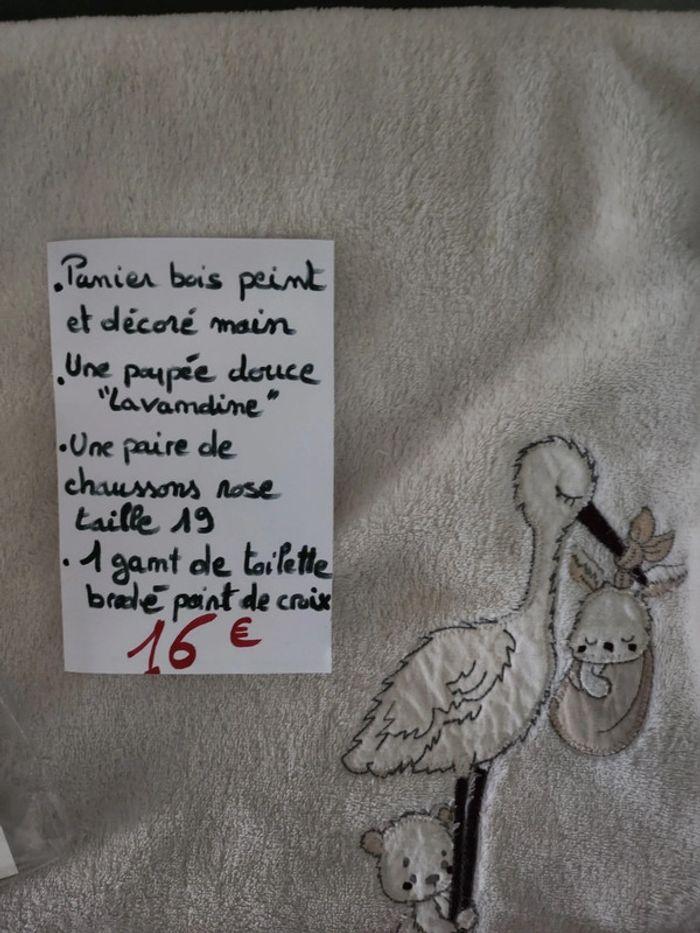 . Panier bois peint
et décoré main
. Une poupée douce
"Lavandine"
. Une paire de
chaussons rose
taille 19
. 1 gant de toilette
brodé point de croix
16 €